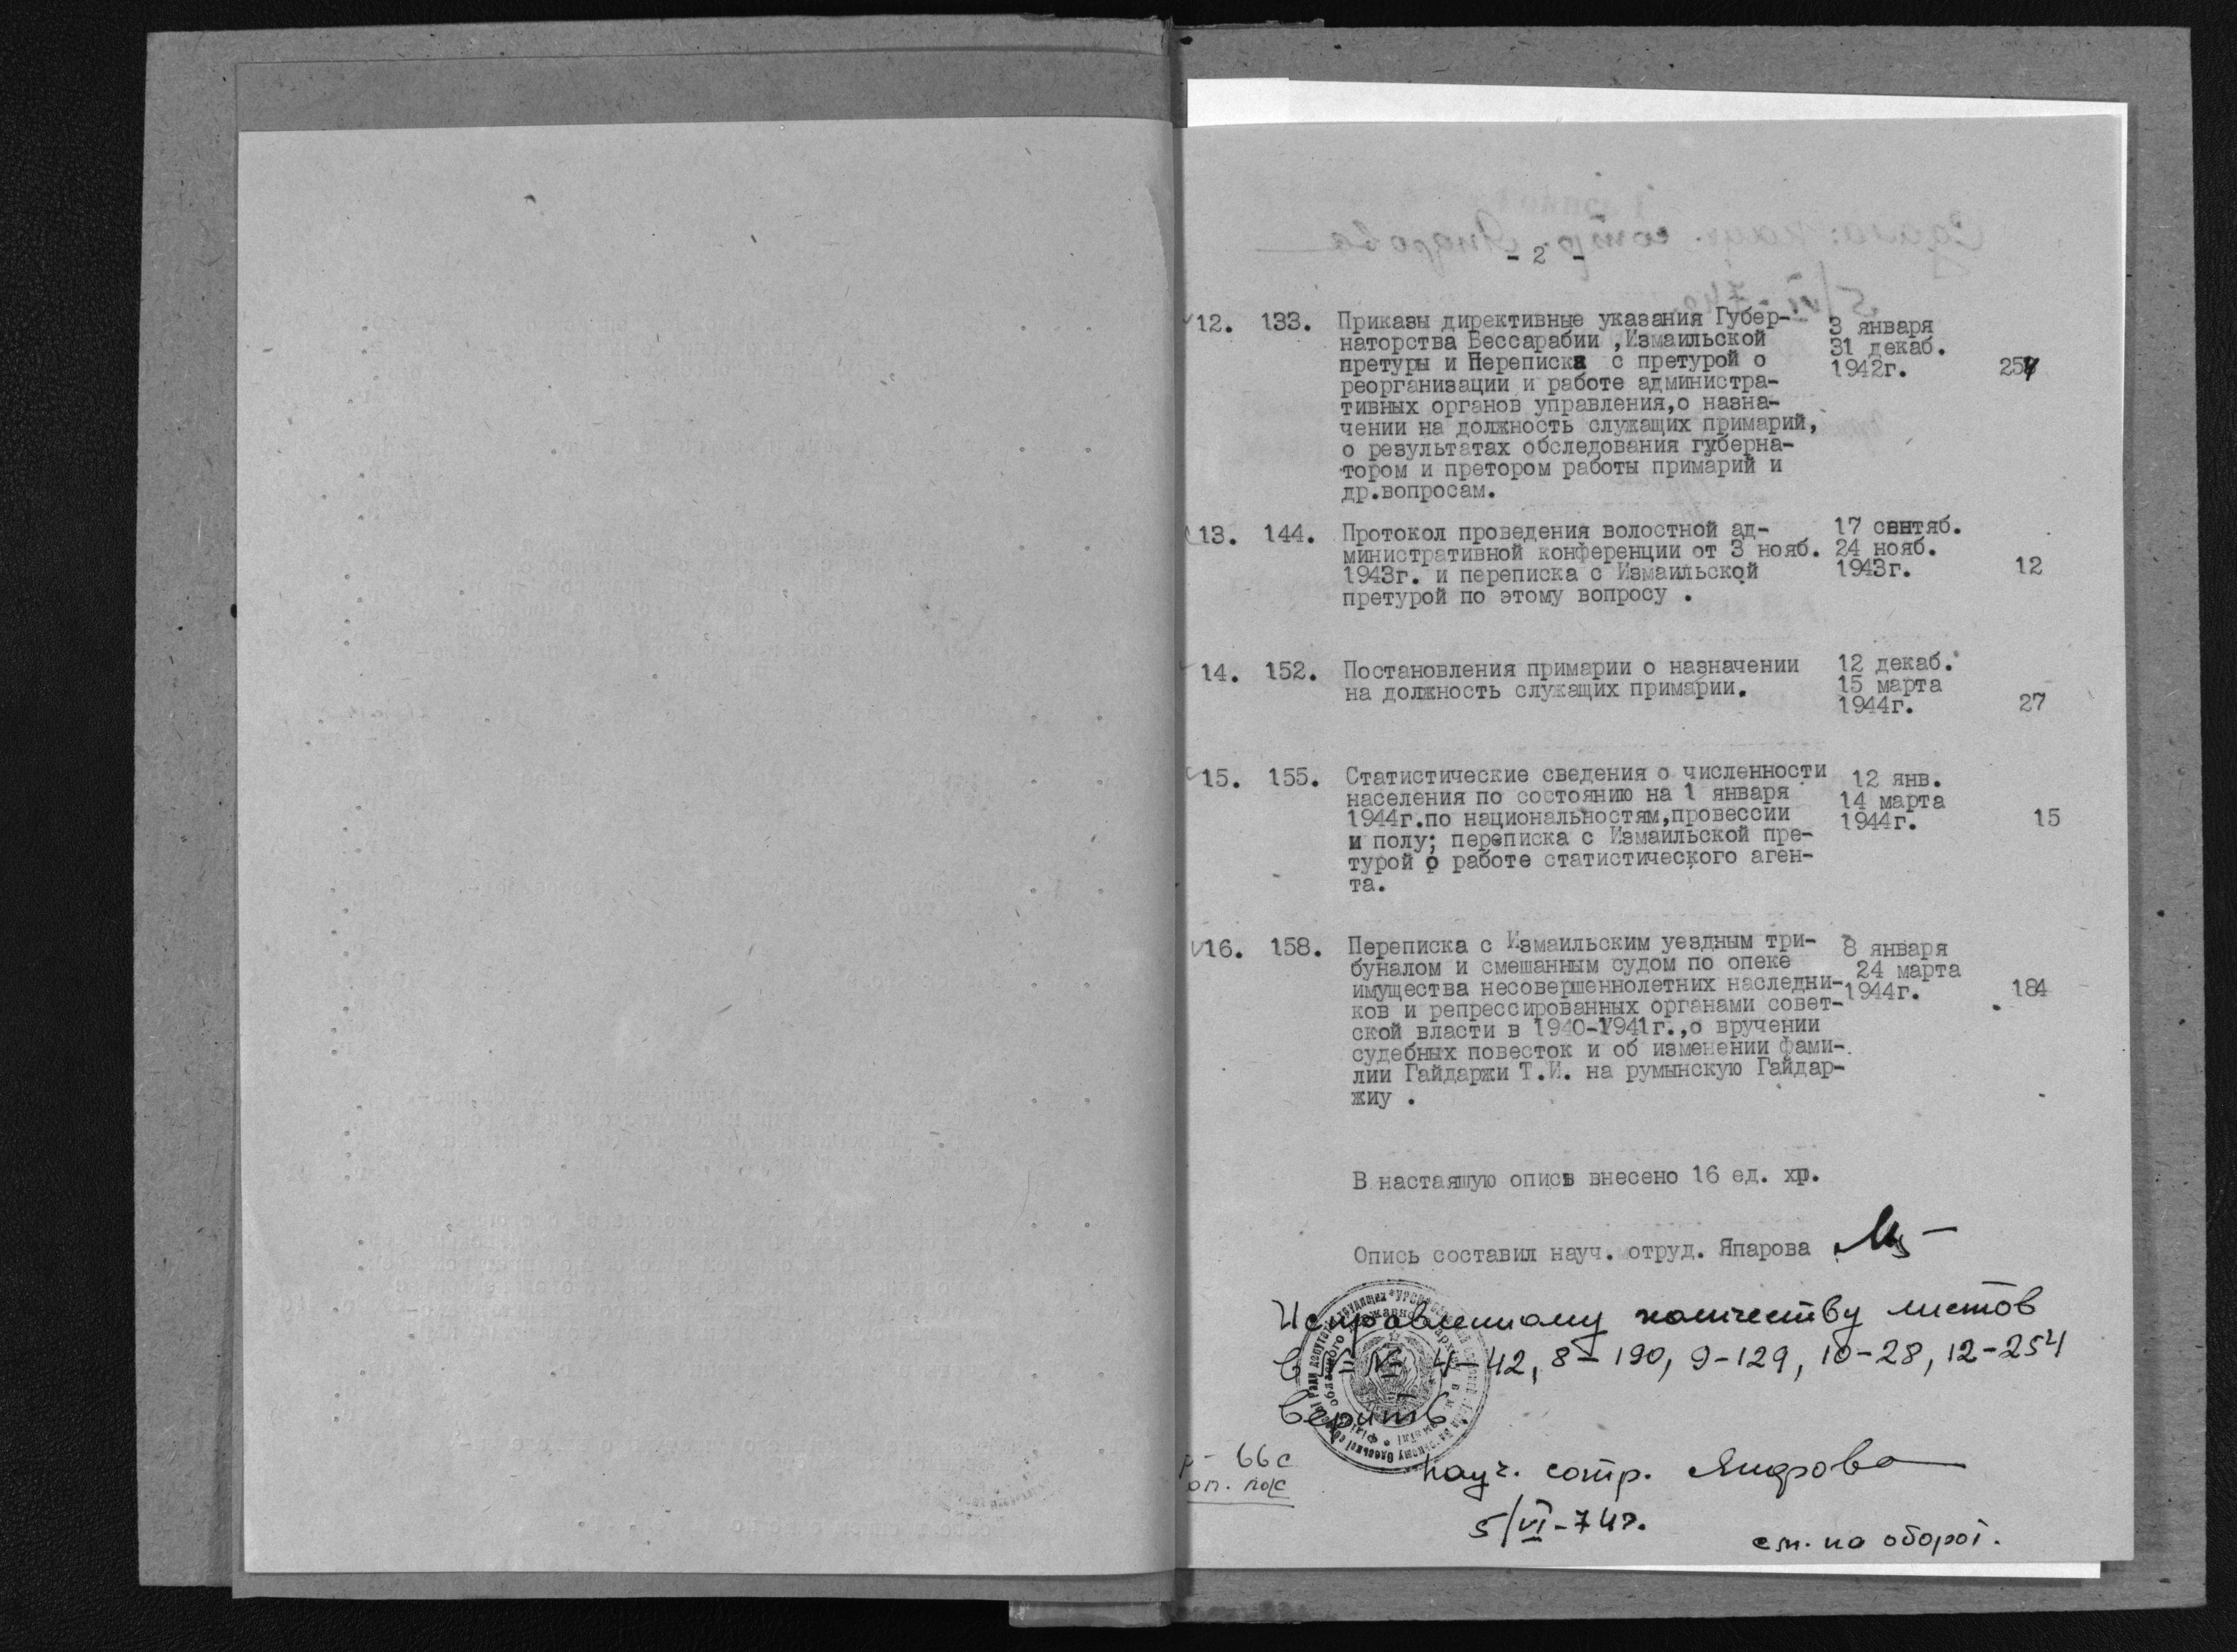 - 2 -
12. 133. Приказы директивные указания Губер- 3 января
наторства Бессарабии ,Измаильской 31 декаб.
претуры и Переписка с претурой о 1942г. 254
реорганизации и работе администра-
тивных органов управления,о назна-
чении на должность служащих примарий,
о результатах обследования губерна-
тором и претором работы примарий и
др.вопросам.
13. 144. Протокол проведения волостной ад- 17 сентяб.
министративной конференции от 3 нояб. 24 нояб.
1943г. и переписка с Измаильской 1943г. 12
претурой по этому вопросу .
14. 152. Постановления примарии о назначении 12 декаб.
на должность служащих примарии. 15 марта
1944г. 27
15. 155. Статистические сведения о численности 12 янв.
населения по состоянию на 1 января 14 марта
1944г.по национальностям,провессии 1944г. 15
и полу; переписка с Измаильской пре-
турой о работе статистического аген-
та.
16. 158. Переписка с Измаильским уездным три- 8 января
буналом и смешанным судом по опеке 24 марта
имущества несовершеннолетних наследни- 1944г. 184
ков и репрессированных органами совет-
ской власти в 1940-1941г.,о вручении
судебных повесток и об изменении фами-
лии Гайдаржи Т.И. на румынскую Гайдар-
жиу .
В настаящую опись внесено 16 ед. хр.
Опись составил науч. отруд. Япарова
Исправленному количеству листов
в 4-42, 8-190, 9-129, 10-28, 12-254
верить.
р- 66с
оп. пос
науч. сотр. Япарова
5/VI-74г.
см. на оборот.